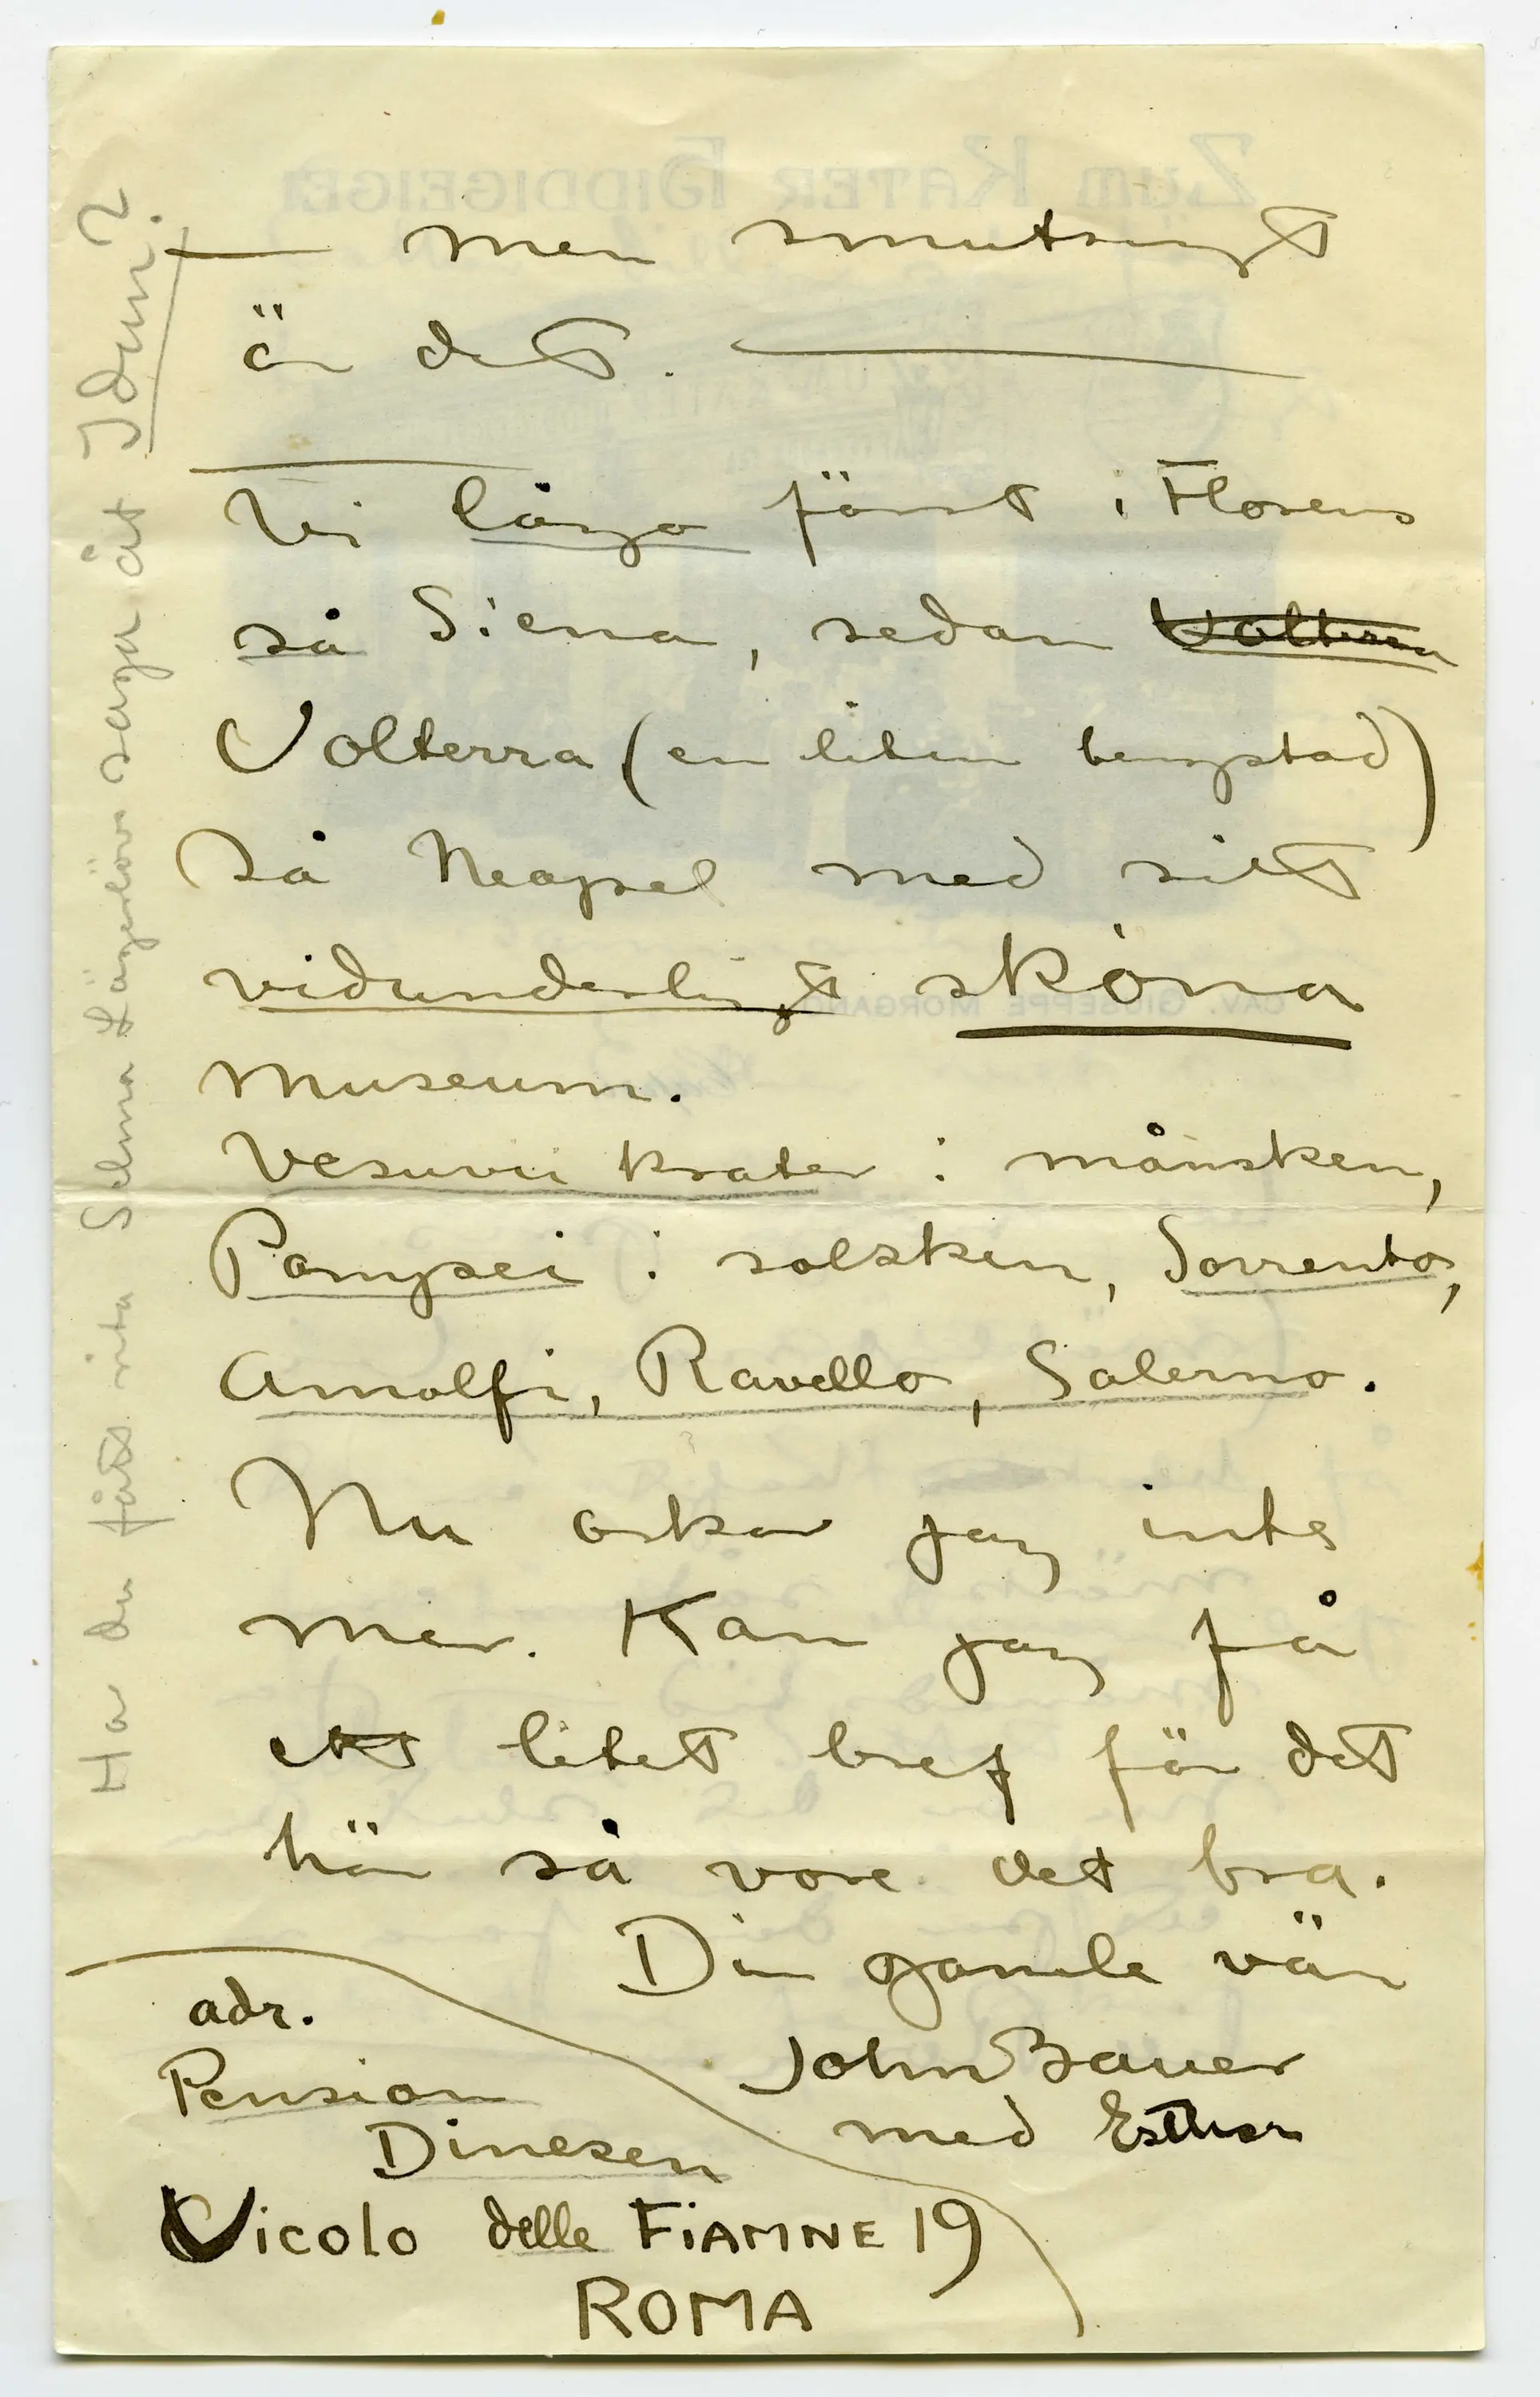 — men smutsigt
är det. —
Vi lågo först i Florens
så Siena, sedan Volterra
Volterra (en liten bergstad)
så Neapel med sitt
vidunderligt sköna
museum.
Vesuvii krater i månsken,
Pompei i solsken, Sorrento,
Amalfi, Ravello, Salerno.
Nu orkar jag inte
mer. Kan jag få
ett litet bref för det
här så vore det bra.
Din gamle vän
John Bauer
med Esther
adr.
Pension
Dinesen
Vicolo delle FIAMNE 19
ROMA
Har du fått rita Selma Lagerlövs saga åt Idun?
ZUM KATER HIDDIGEIGEI
CAV. GIUSEPPE MORGANO